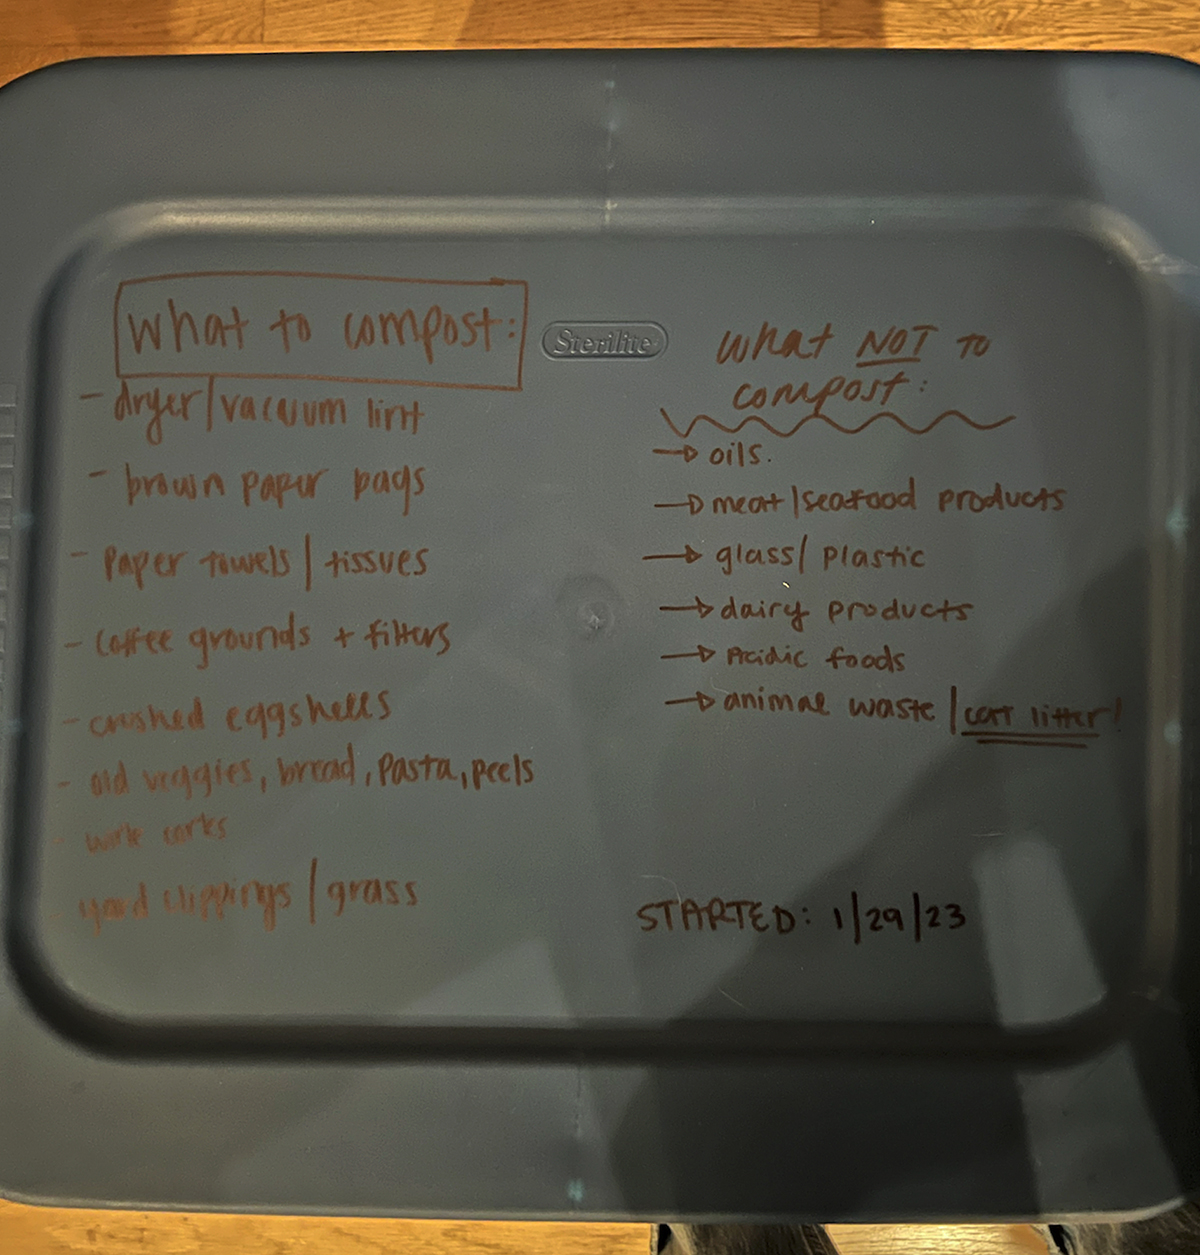 What to compost:
- dryer/vacuum lint
- brown paper bags
- Paper towels/tissues
- coffee grounds + filters
- crushed eggshells
- old veggies, bread, pasta, peels
- wine corks
- yard clippings/grass
Sterilite
What NOT to
compost:
→ oils.
→ meat/seafood products
→ glass/plastic
→ dairy products
→ Acidic foods
→ animal waste/cat litter!
STARTED: 1/29/23